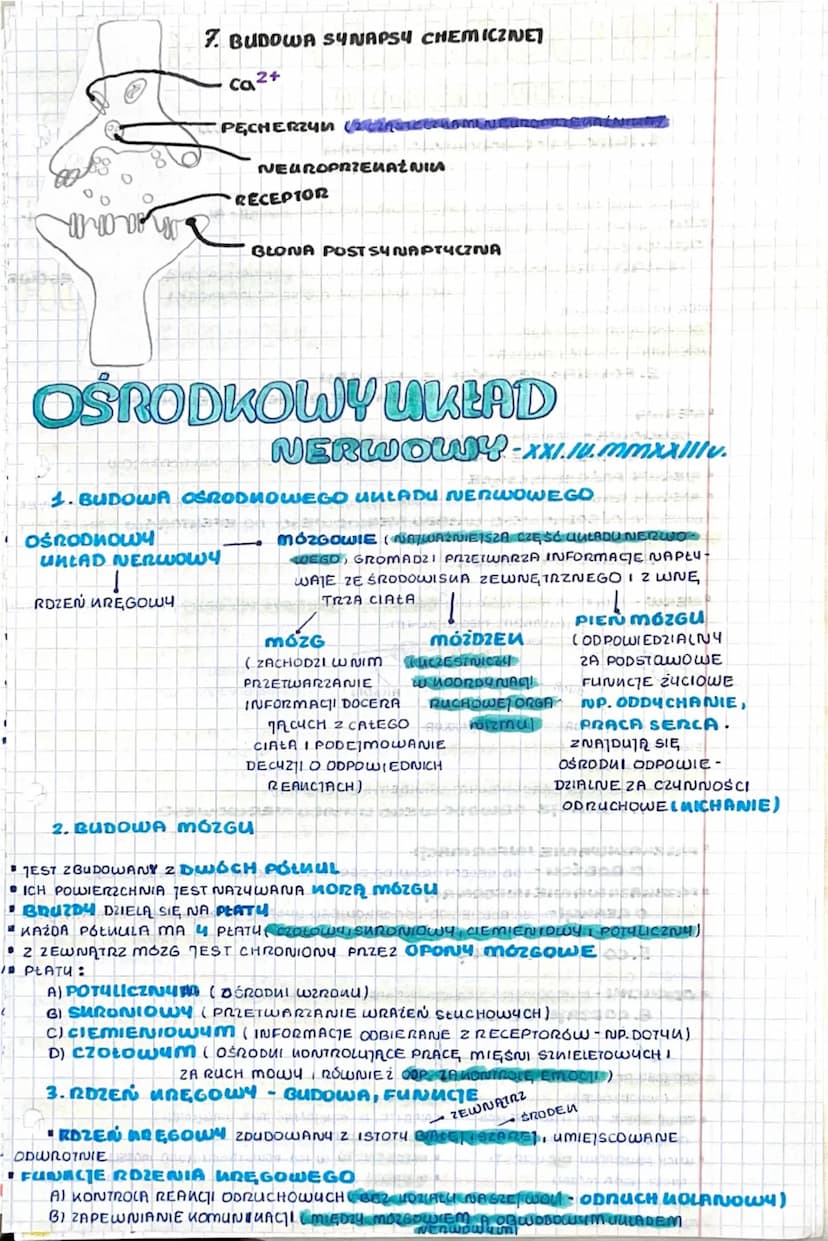 7. BUDOWA SYNAPSY CHEMICZNEJ
Ca²⁺
PĘCHERZYK (Z CZĄSTECZKAMI NEUROPRZEKAŹNIKA)
NEUROPRZEKAŹNIK
RECEPTOR
BŁONA POSTSYNAPTYCZNA
OŚRODKOWY UKŁAD
NERWOWY - XXI.IV.MMXXIIIV.
1. BUDOWA OŚRODKOWEGO UKŁADU NERWOWEGO
OŚRODKOWY
UKŁAD NERWOWY
RDZEŃ KRĘGOWY
MÓZGOWIE (NAJWAŻNIEJSZA CZĘŚĆ UKŁADU NERWO-
WEGO, GROMADZI PRZETWARZA INFORMACJE NAPŁY-
WAJE ZE ŚRODOWISKA ZEWNĘTRZNEGO I Z WNĘ
TRZA CIAŁA
MÓZG
(ZACHODZI W NIM
PRZETWARZANIE
INFORMACJI DOCERA
JĄCYCH Z CAŁEGO
CIAŁA I PODEJMOWANIE
DECYZJI O ODPOWIEDNICH
REAKCJACH)
MÓŻDZEK
(UCZESTNICZY
W KOORDYNACJI
RUCHOWEJ ORGA-
NIZMU)
PIEŃ MÓZGU
(ODPOWIEDZIALNY
ZA PODSTAWOWE
FUNKCJE ŻYCIOWE
NP. ODDYCHANIE,
PRACA SERCA.
ZNAJDUJĄ SIĘ
OŚRODKI ODPOWIE-
DZIALNE ZA CZYNNOŚCI
ODRUCHOWE (KICHANIE)
2. BUDOWA MÓZGU
▪ JEST ZBUDOWANY Z DWÓCH PÓŁKUL
▪ ICH POWIERZCHNIA JEST NAZYWANA KORĄ MÓZGU
▪ BRUZDY DZIELĄ SIĘ NA PŁATY
▪ KAŻDA PÓŁKULA MA 4 PŁATY (CZOŁOWY, SKRONIOWY, CIEMIENIOWY I POTYLICZNY)
▪ Z ZEWNĄTRZ MÓZG JEST CHRONIONY PRZEZ OPONY MÓZGOWE
▪ PŁATY:
A) POTYLICZNYM (OŚRODKI WZROKU)
B) SKRONIOWY (PRZETWARZANIE WRAŻEŃ SŁUCHOWYCH)
C) CIEMIENIOWYM (INFORMACJE ODBIERANE Z RECEPTORÓW - NP. DOTYK)
D) CZOŁOWYM (OŚRODKI KONTROLUJĄCE PRACĘ MIĘŚNI SZKIELETOWYCH I
ZA RUCH MOWY, RÓWNIEŻ ODP. ZA KONTROLĘ EMOCJI)
3. RDZEŃ KRĘGOWY - BUDOWA, FUNKCJE
ZEWNĄTRZ
ŚRODEK
▪ RDZEŃ KRĘGOWY ZDUDOWANY Z ISTOTY BIAŁEJ I SZAREJ, UMIEJSCOWANE
ODWROTNIE
▪ FUNKCJE RDZENIA KRĘGOWEGO
A) KONTROLA REAKCJI ODRUCHOWYCH (BEZ UDZIAŁU NASZEJ WOLI - ODRUCH KOLANOWY)
B) ZAPEWNIANIE KOMUNIKACJI (MIĘDZY MÓZGOWIEM A OBWODOWYM UKŁADEM
NERWOWYM)